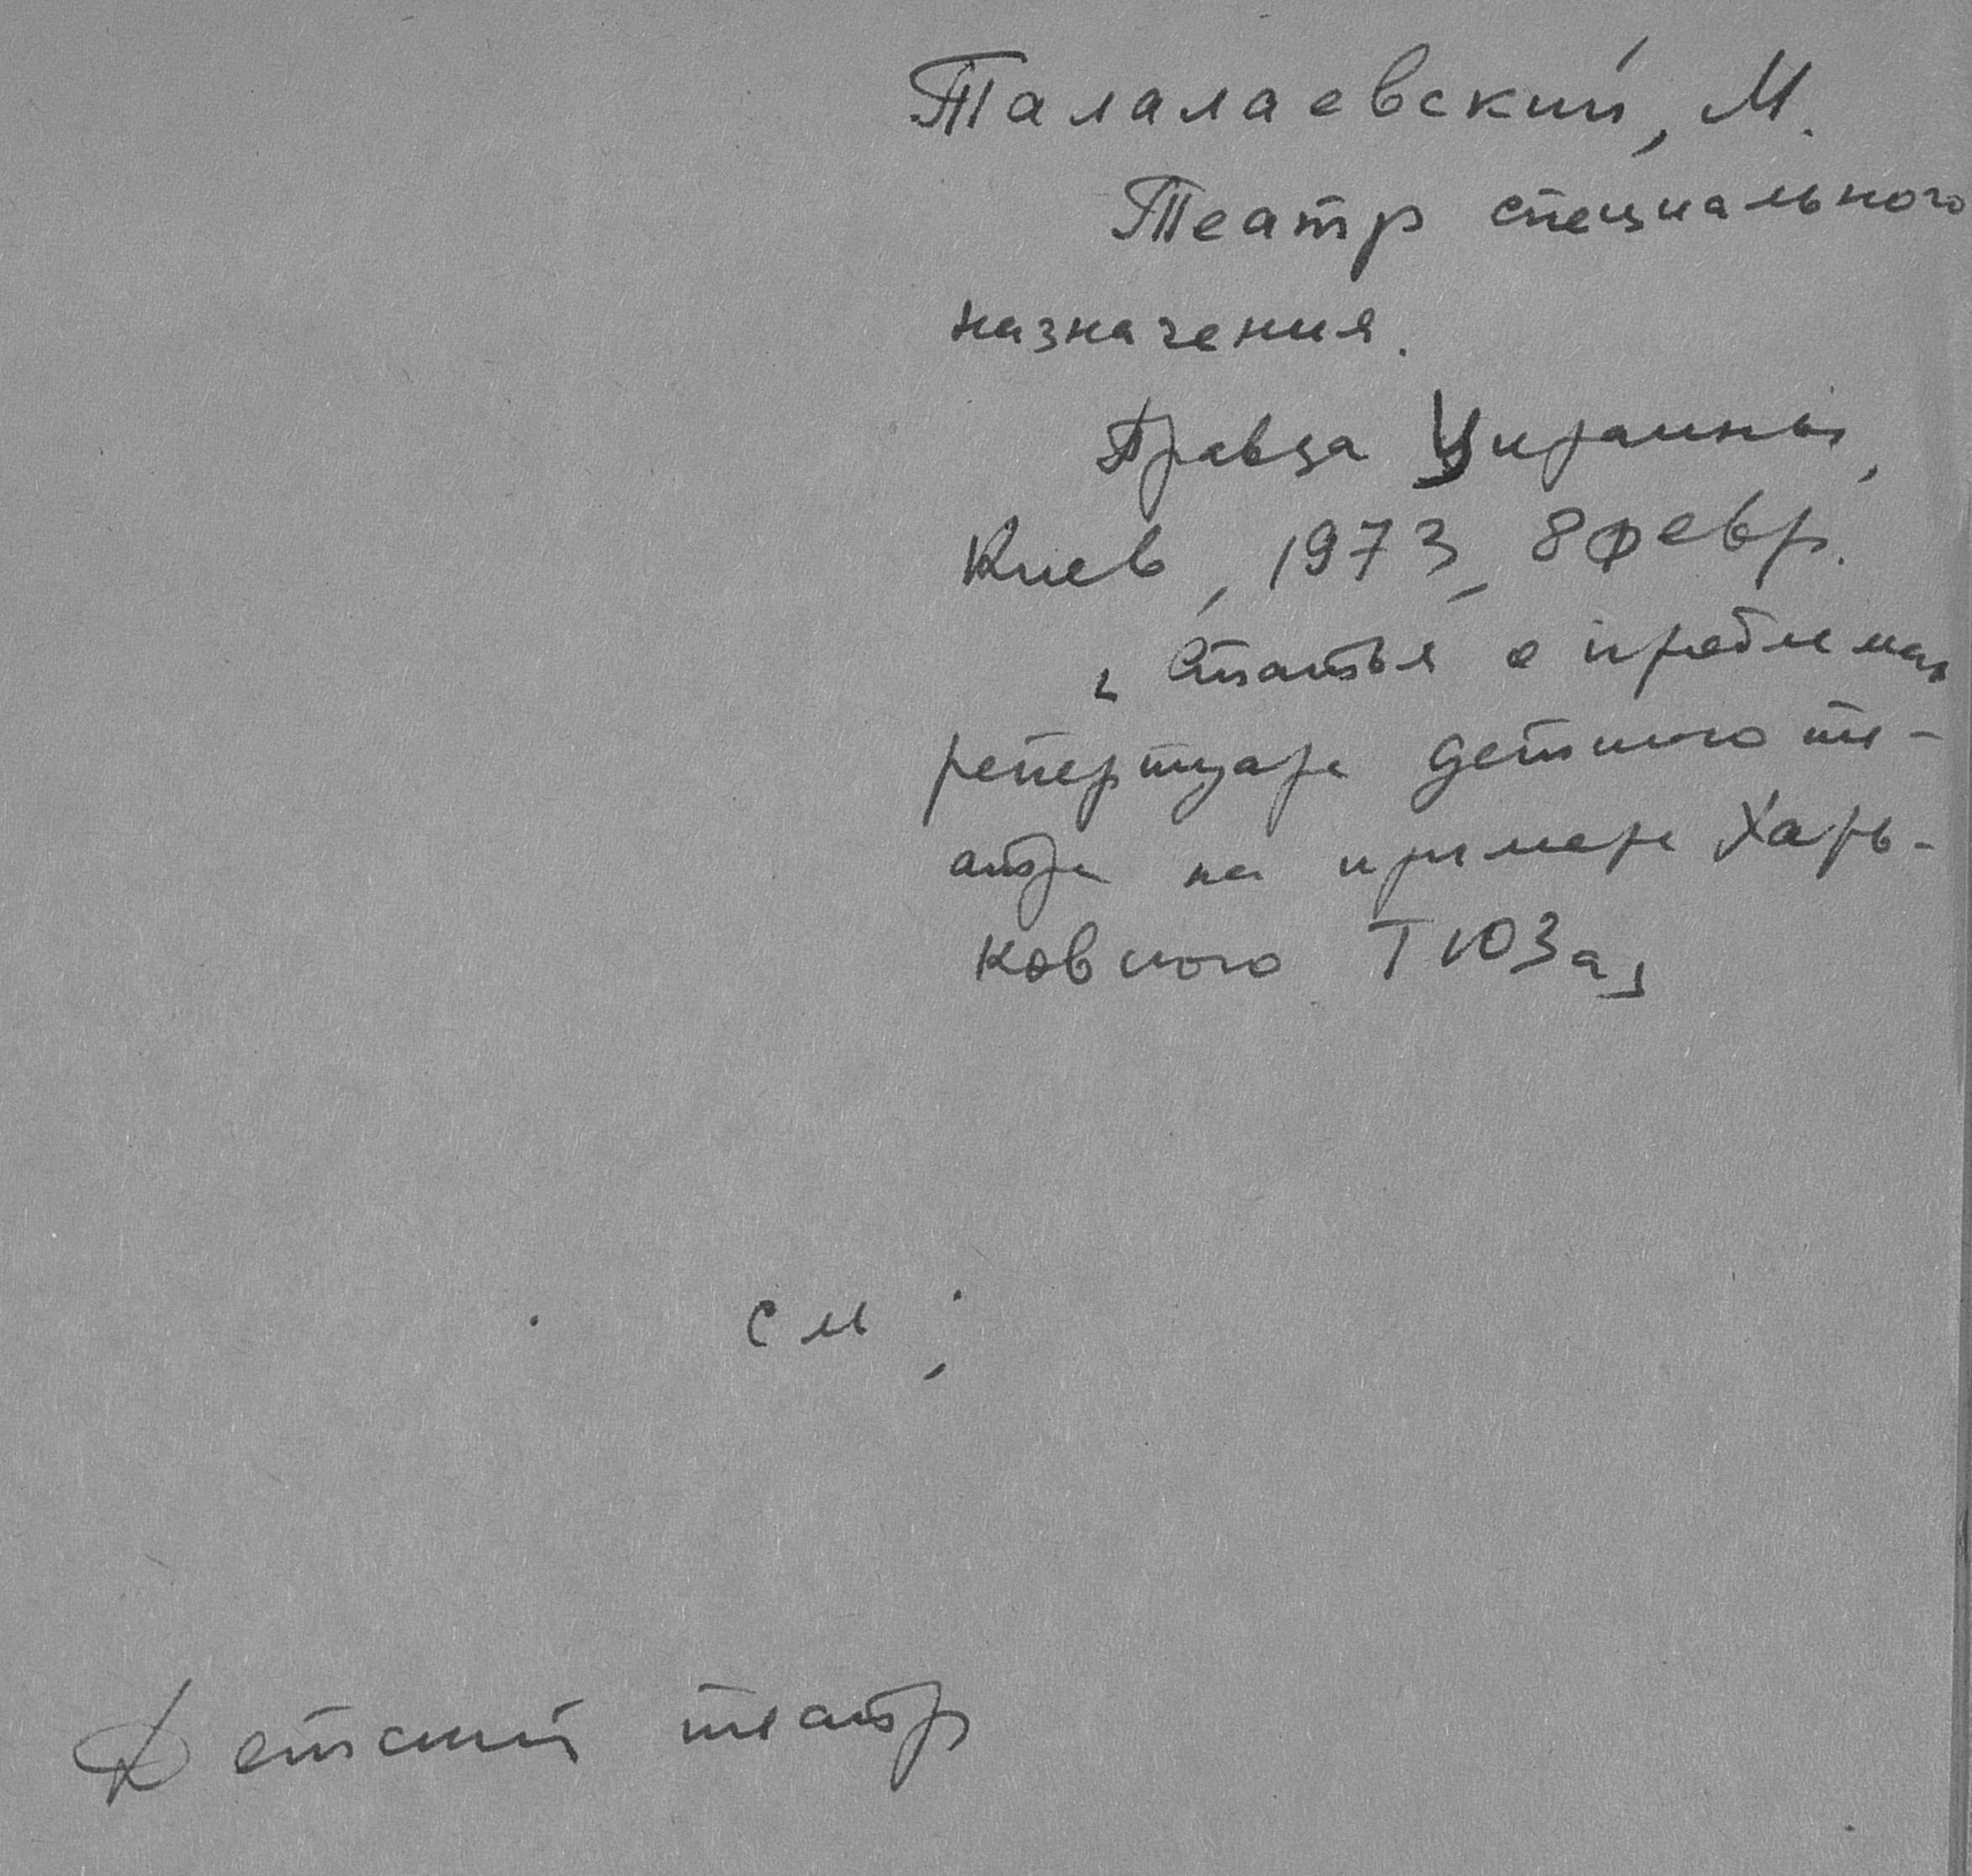 Талалаевский, М.
Театр специального
назначения.
Правда Украины,
Киев, 1973, 8 февр.
[Статья о проблемах
репертуара детского те-
атра на примере Харь-
ковского ТЮЗа]
см.
Детский театр